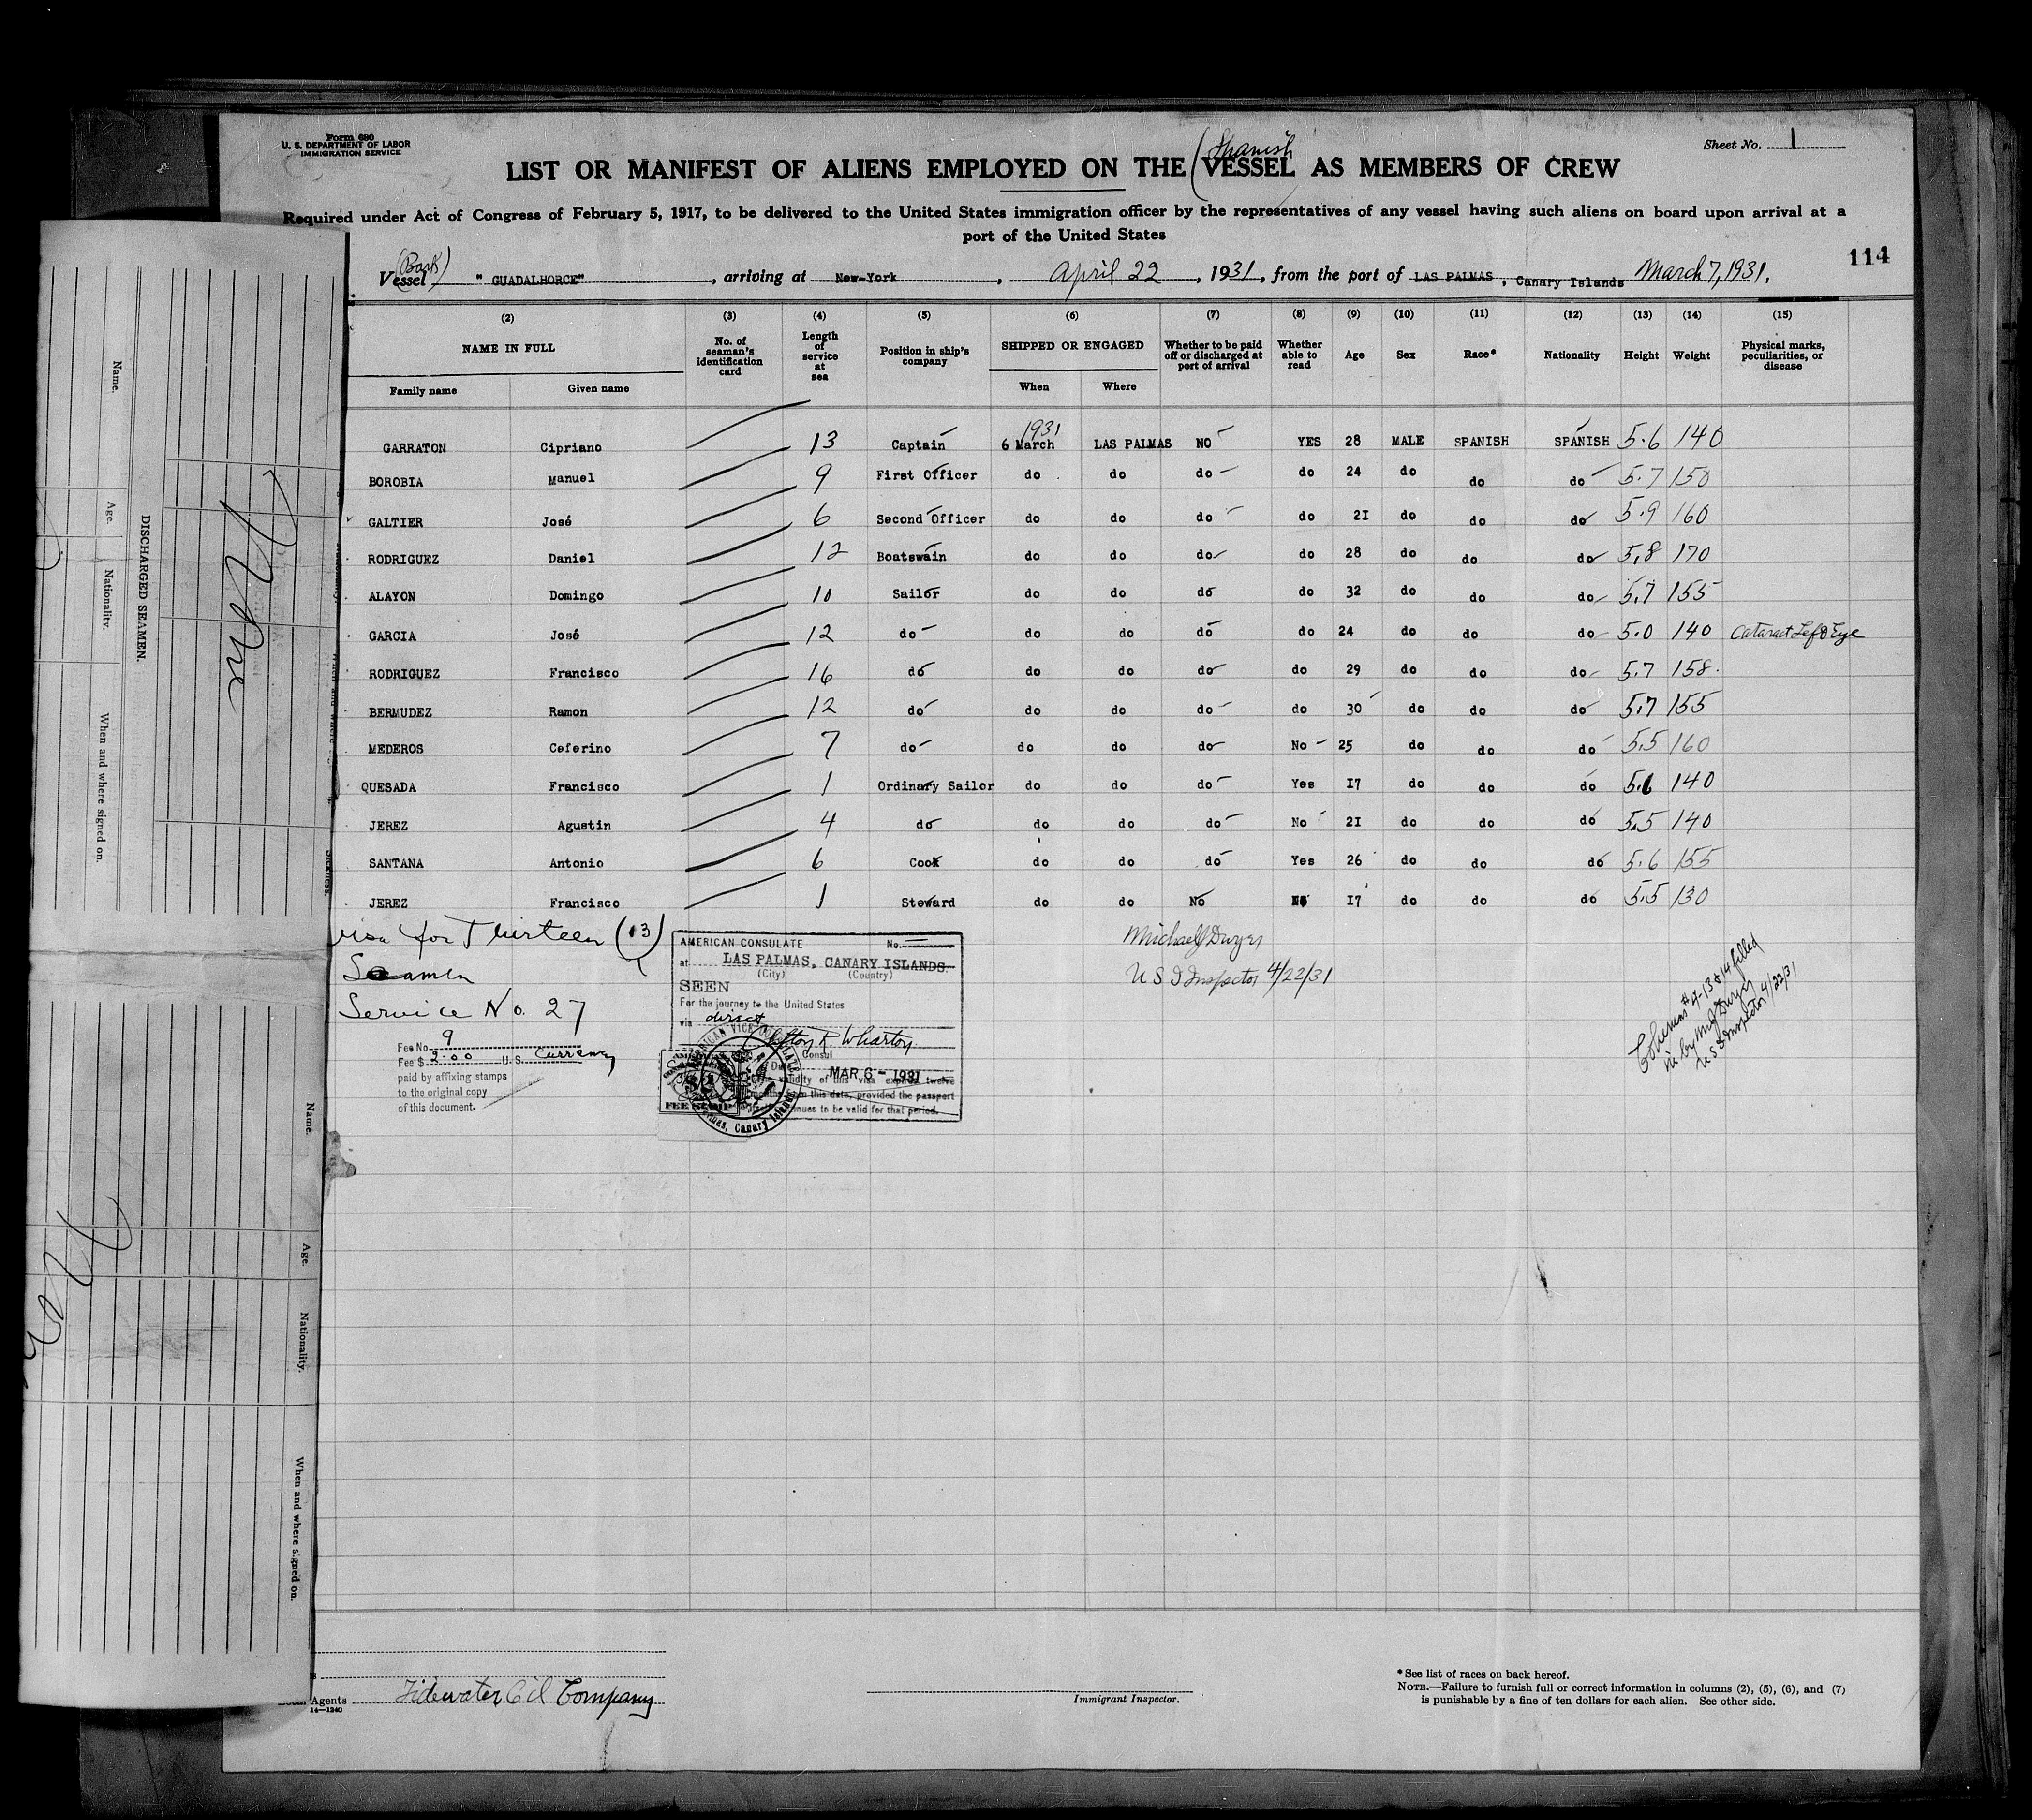 Form 680
U. S. DEPARTMENT OF LABOR
IMMIGRATION SERVICE
Sheet No. 1
Spanish
LIST OR MANIFEST OF ALIENS EMPLOYED ON THE VESSEL AS MEMBERS OF CREW
Required under Act of Congress of February 5, 1917, to be delivered to the United States immigration officer by the representatives of any vessel having such aliens on board upon arrival at a
port of the United States
114
(Bark)
Vessel "GUADALHORCE", arriving at New-York, April 22, 1931, from the port of LAS PALMAS, Canary Islands March 7, 1931.
(2) (3) (4) (5) (6) (7) (8) (9) (10) (11) (12) (13) (14) (15)
NAME IN FULL No. of seaman's identification card Length of service at sea Position in ship's company SHIPPED OR ENGAGED Whether to be paid off or discharged at port of arrival Whether able to read Age Sex Race* Nationality Height Weight Physical marks, peculiarities, or disease
Family name Given name When Where
1931
GARRATON Cipriano 13 Captain 6 March LAS PALMAS NO YES 28 MALE SPANISH SPANISH 5.6 140
BOROBIA Manuel 9 First Officer do do do do 24 do do do 5.7 150
GALTIER José 6 Second Officer do do do do 21 do do do 5.9 160
RODRIGUEZ Daniel 12 Boatswain do do do do 28 do do do 5.8 170
ALAYON Domingo 10 Sailor do do do do 32 do do do 5.7 155
GARCIA José 12 do do do do do 24 do do do 5.0 140 Cataract Left Eye
RODRIGUEZ Francisco 16 do do do do do 29 do do do 5.7 158.
BERMUDEZ Ramon 12 do do do do do 30 do do do 5.7 155
MEDEROS Ceferino 7 do do do do No 25 do do do 5.5 160
QUESADA Francisco 1 Ordinary Sailor do do do Yes 17 do do do 5.6 140
JEREZ Agustin 4 do do do do No 21 do do do 5.5 140
SANTANA Antonio 6 Cook do do do Yes 26 do do do 5.6 155
JEREZ Francisco 1 Steward do do No No 17 do do do 5.5 130
visa for Thirteen (13)
Seamen
Service No. 27
Fee No. 9
Fee $ 2.00 U. S. Currency
paid by affixing stamps
to the original copy
of this document.
AMERICAN CONSULATE No.
at LAS PALMAS, CANARY ISLANDS.
(City) (Country)
SEEN
For the journey to the United States
via direct
Clifton R. Wharton
Consul
MAR 6 - 1931
validity of this visa expires twelve
months from this date, provided the passport
continues to be valid for that period.
FEE STAMP
Canary Islands
Michael J Dwyer
U S I Inspector 4/22/31
Columns #4-13 & 14 filled
in by M J Dwyer
U S I Inspector 4/22/31
Agents Tidewater Oil Company
14—1240
Immigrant Inspector.
*See list of races on back hereof.
NOTE.—Failure to furnish full or correct information in columns (2), (5), (6), and (7)
is punishable by a fine of ten dollars for each alien. See other side.
DISCHARGED SEAMEN.
Name.
Age.
Nationality.
When and where signed on.
Name.
Age.
Nationality.
When and where signed on.
Sickness.